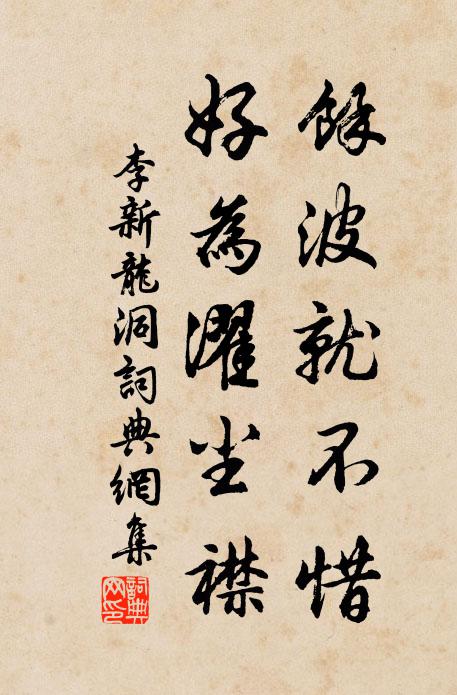 餘波就不惜
好為濯尘襟
李新龍洞詞典網集
詞典網印